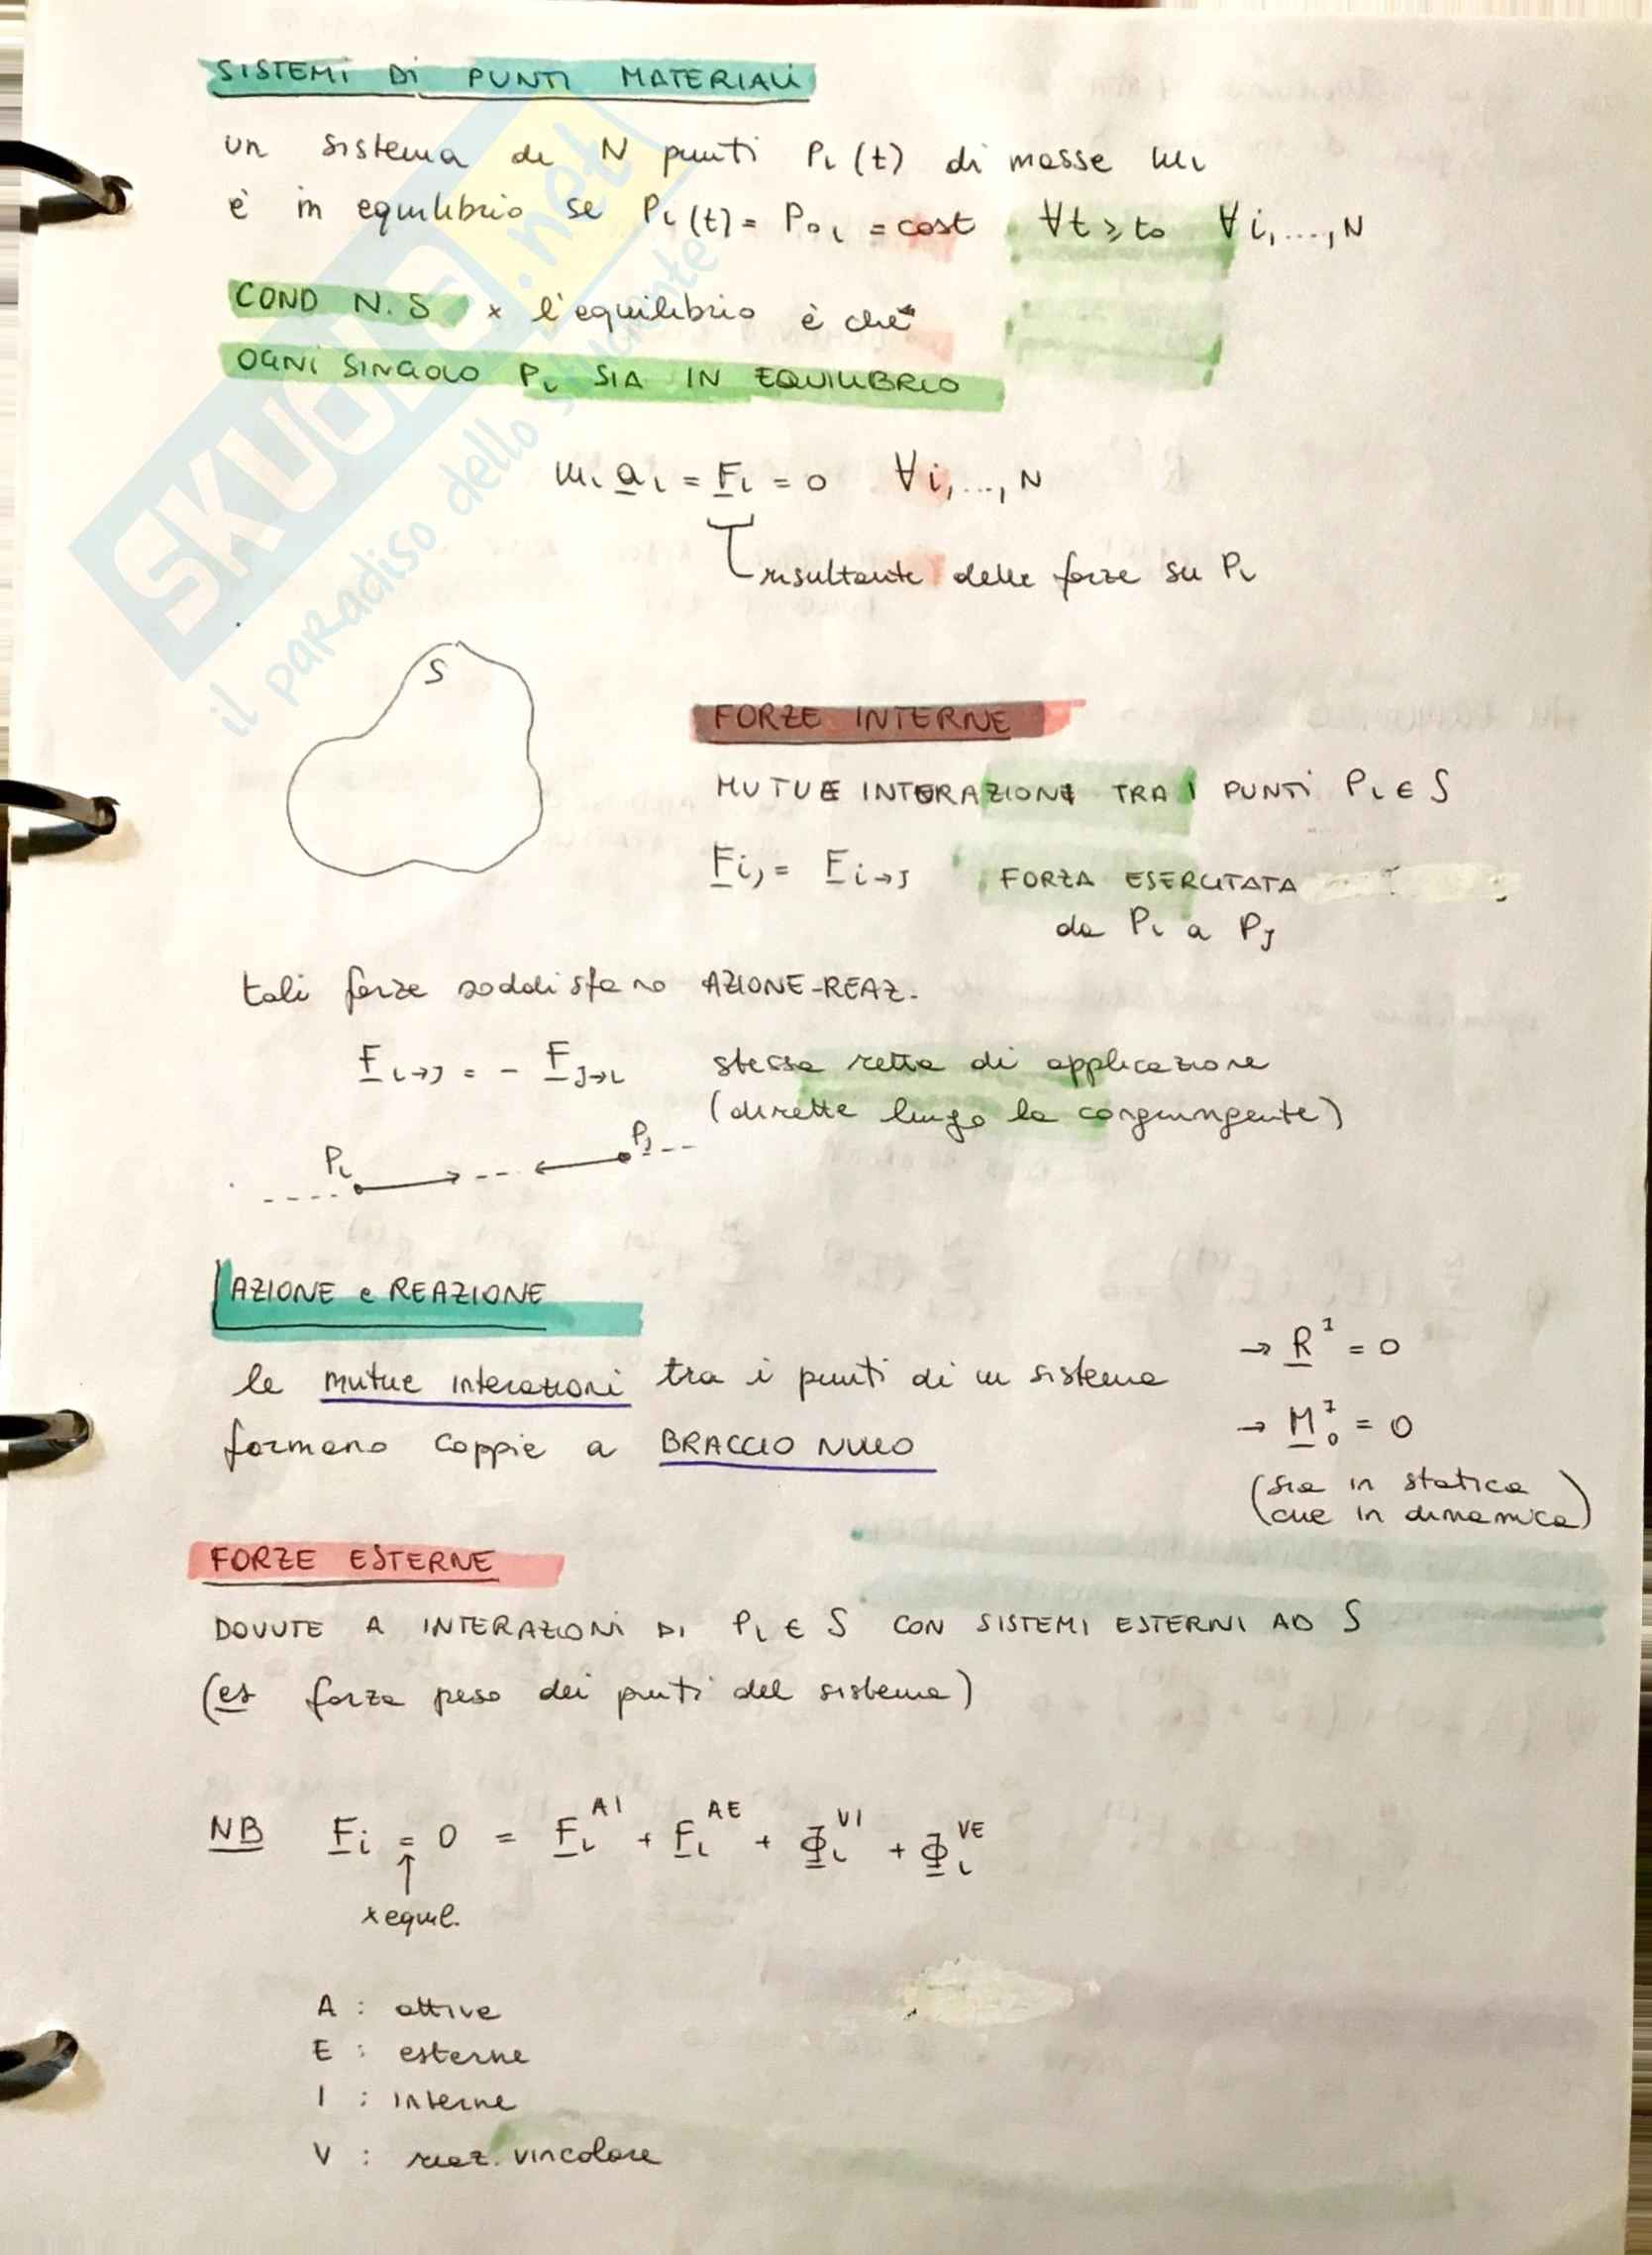 SISTEMI DI PUNTI MATERIALI
un sistema di N punti Pi(t) di masse mi
è in equilibrio se Pi(t) = P0i = cost ∀t ≥ t0 ∀i,...,N
COND N.S x l'equilibrio è che
OGNI SINGOLO Pi SIA IN EQUILIBRIO
mi ai = Fi = 0 ∀i,...,N
risultante delle forze su Pi
S
FORZE INTERNE
MUTUE INTERAZIONI TRA I PUNTI Pi ∈ S
Fij = Fi→j FORZA ESERCITATA
da Pi a Pj
tali forze soddisfano AZIONE-REAZ.
Fi→j = - Fj→i stessa retta di applicazione
(dirette lungo la congiungente)
Pi Pj
AZIONE e REAZIONE
le mutue interazioni tra i punti di un sistema
formano coppie a BRACCIO NULLO
→ R^I = 0
→ M_0^I = 0
(sia in statica
che in dinamica)
FORZE ESTERNE
DOVUTE A INTERAZIONI DI Pi ∈ S CON SISTEMI ESTERNI AD S
(es forza peso dei punti del sistema)
NB Fi = 0 = Fi^AI + Fi^AE + Φi^VI + Φi^VE
↑
x equil.
A : attive
E : esterne
I : interne
V : reaz. vincolare
SKUOLA.net
il paradiso dello studente